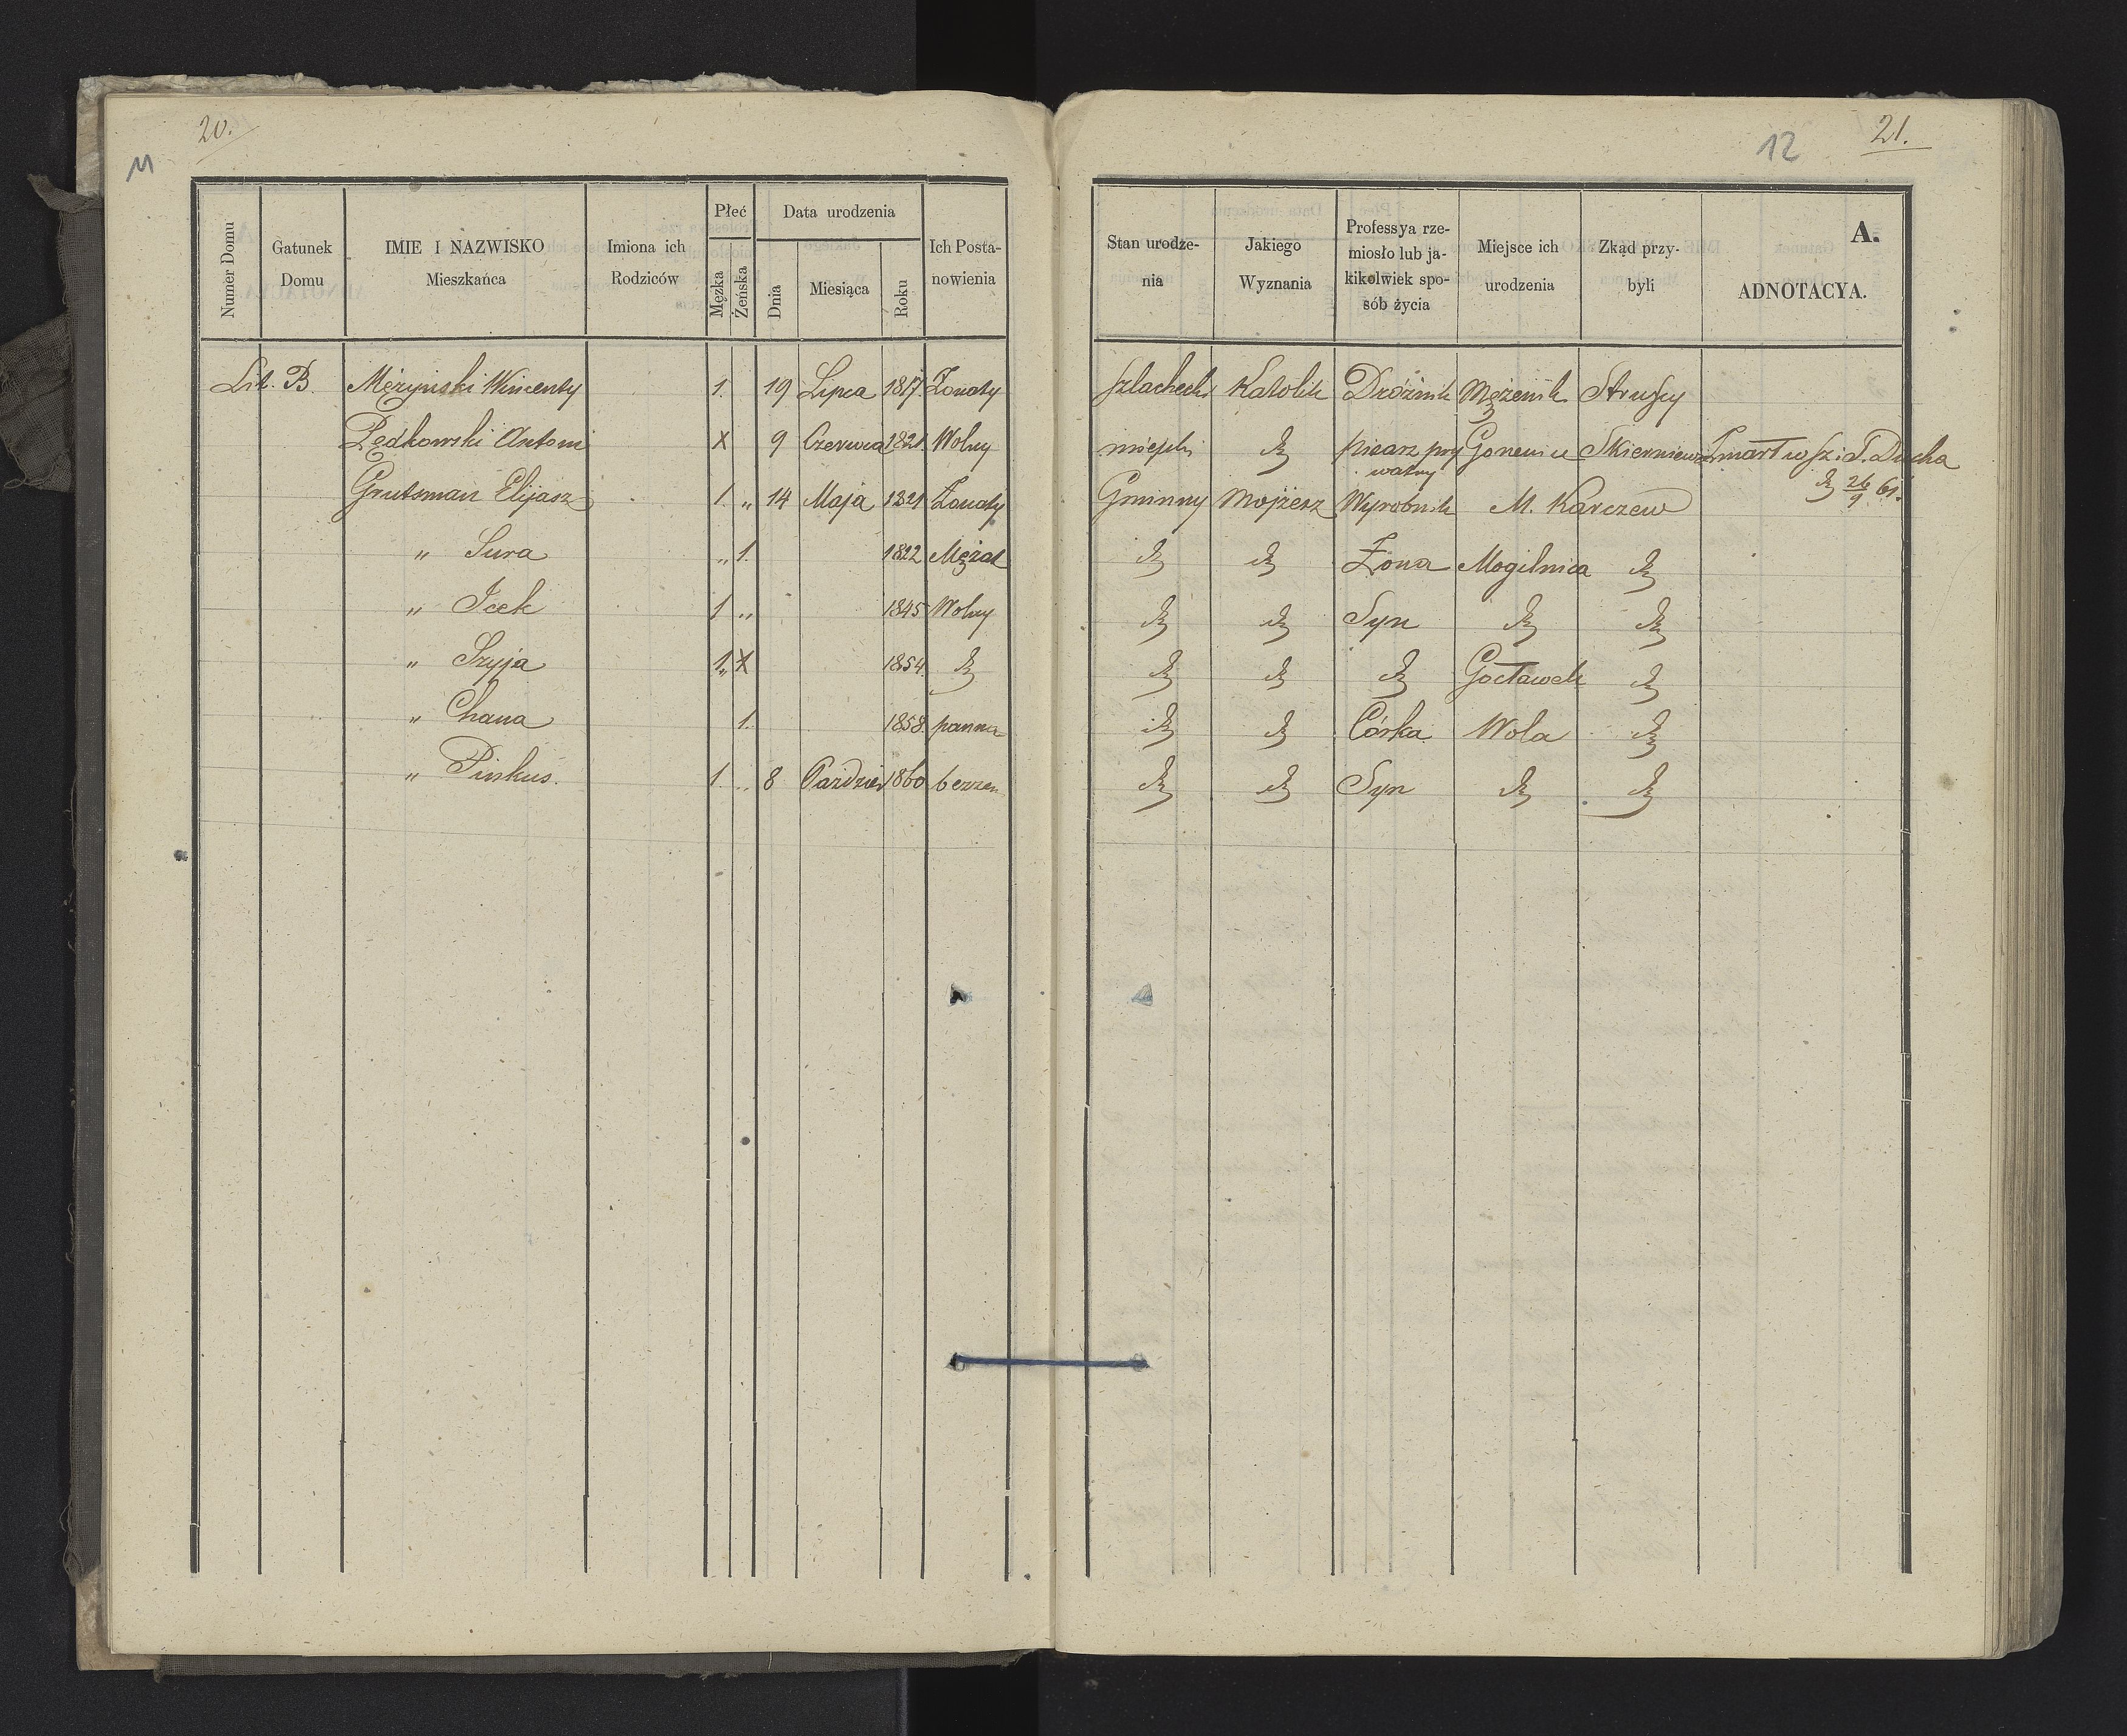 20.
11
Numer Domu
Gatunek Domu
IMIE I NAZWISKO Mieszkańca
Imiona ich Rodziców
Płeć
Męzka
Żeńska
Data urodzenia
Dnia
Miesiąca
Roku
Ich Posta-nowienia
Lit. B. Mężyński Wincenty 1. 19 Lipca 1817. Żonaty
Pędkowski Antoni X 9 Czerwca 1821. Wolny
Grutsman Elijasz 1. „ 14 Maja 1821 Żonaty
„ Sura „ 1. 1822 Mężat
„ Icek 1 „ 1845 Wolny
„ Szyja 1 „ X 1854. dto
„ Chana 1. 1858. panna
„ Pinkus. 1. „ 8 Paździer 1860 bezżen
12
21.
Stan urodze-nia
Jakiego Wyznania
Professya rze-miosło lub ja-kikolwiek spo-sób życia
Miejsce ich urodzenia
Zkąd przy-byli
A.
ADNOTACYA.
szlachecki Katolik Dróżnik Mężenin Strusy
miejski dto pisarz pry Skierniewic Zmarł w Sz: S. Ducha
watny
dto 26/9 61.
Gminny Mojżesz Wyrobnik M. Karczew
dto dto Żona Mogilnica dto
dto dto Syn dto dto
dto dto dto Gocławek dto
dto dto Córka Wola dto
dto dto Syn dto dto